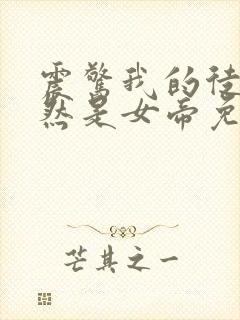 震驚我的徒
然是女帝免
芒其之一